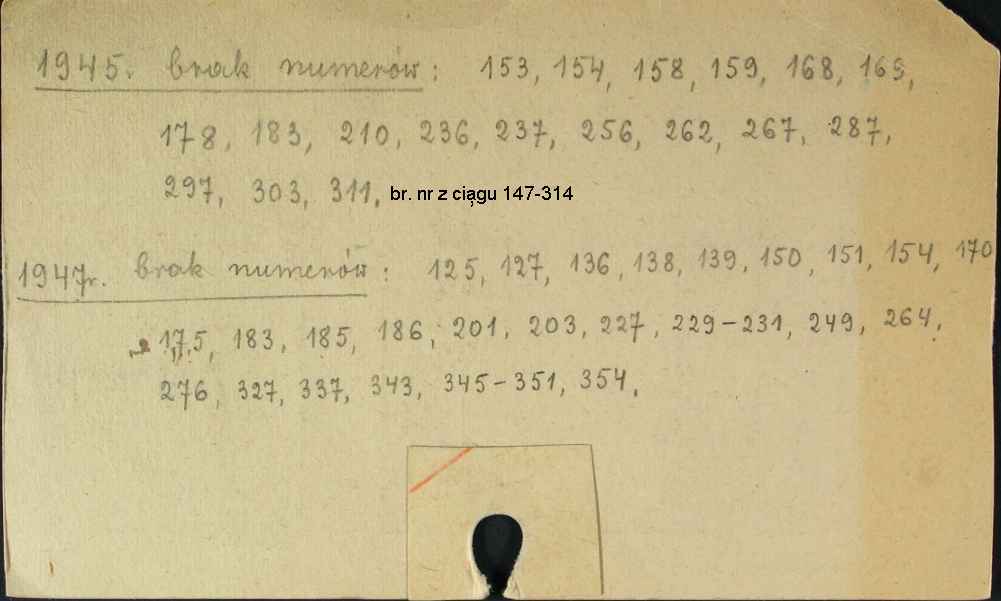 1945. brak numerów: 153, 154, 158, 159, 168, 169,
178, 183, 210, 236, 237, 256, 262, 267, 287,
297, 303, 311, br. nr z ciągu 147-314
1947r. brak numerów: 125, 127, 136, 138, 139, 150, 151, 154, 170
175, 183, 185, 186, 201, 203, 227, 229-231, 249, 264,
276, 327, 337, 343, 345-351, 354,